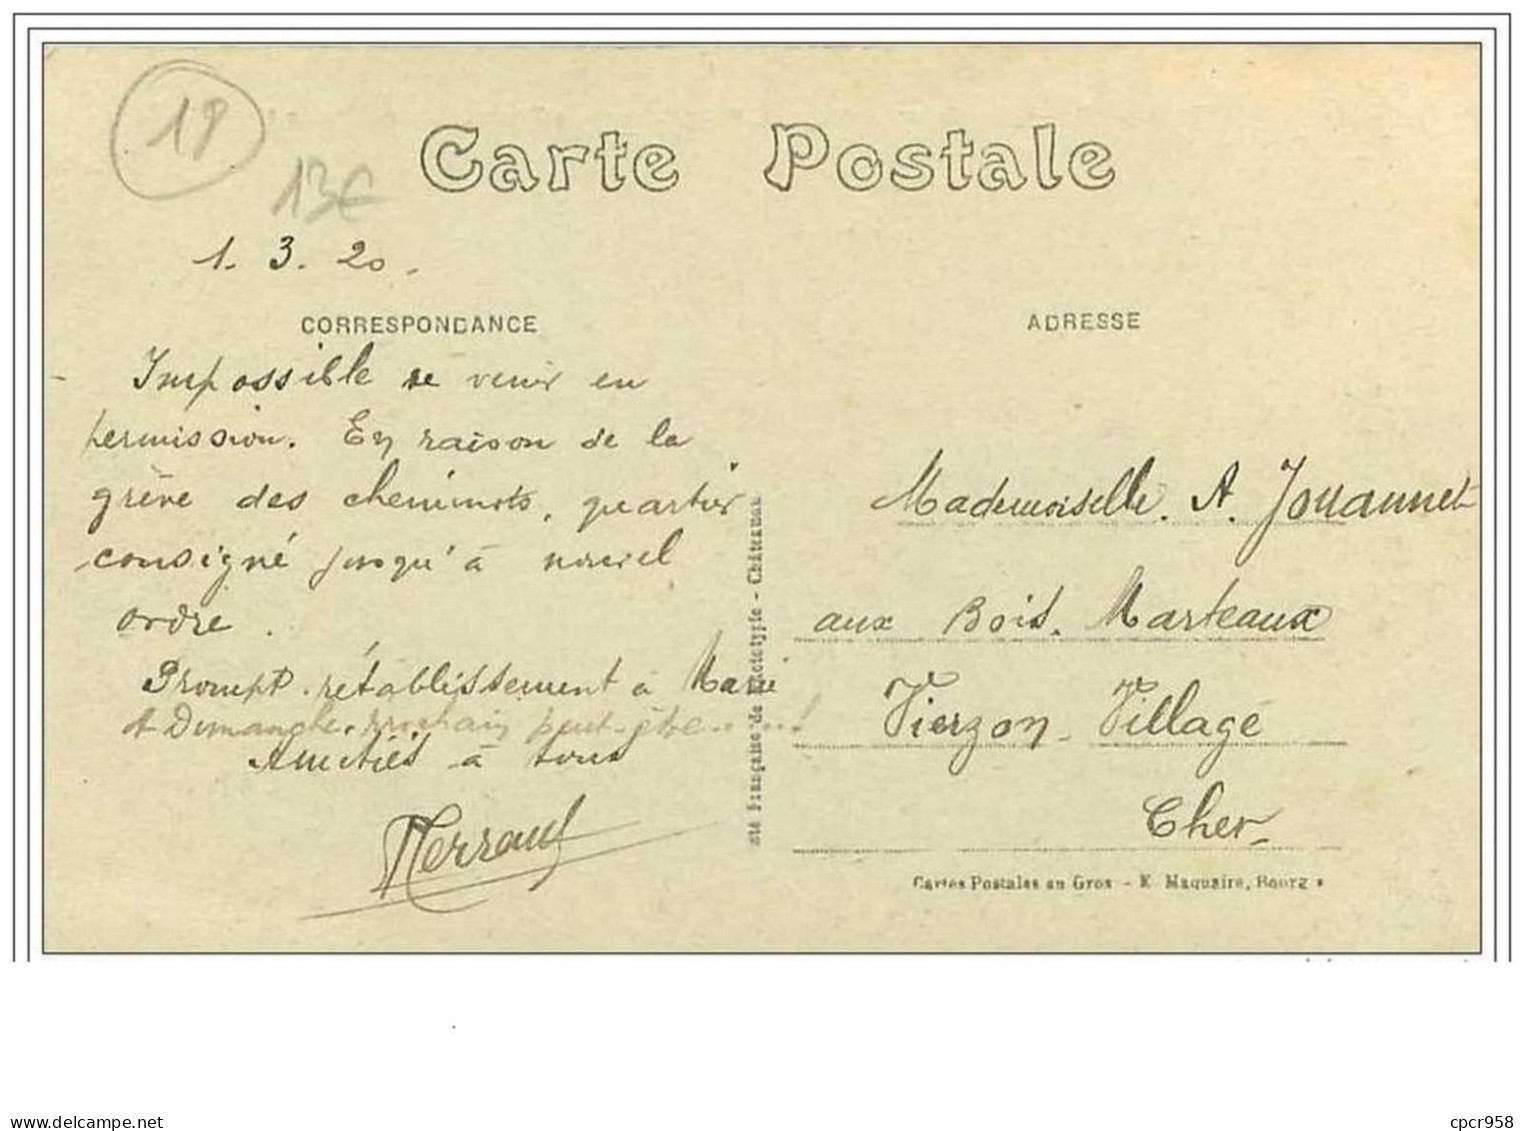 18
13€
Carte Postale
1. 3. 20.
CORRESPONDANCE
ADRESSE
Impossible de venir en
permission. En raison de la
grève des cheminots, quartier
consigné jusqu'à nouvel
ordre.
Prompt rétablissement à Marie
A Dimanche prochain peut-être.....!
Amitiés à tous
Mademoiselle. A. Jouannet
aux Bois. Marteaux
Vierzon-Village
Cher
Sté Française de Phototypie - Châteauroux
Cartes Postales en Gros - E. Maquaire, Bourges
www.delcampe.net
cpcr958